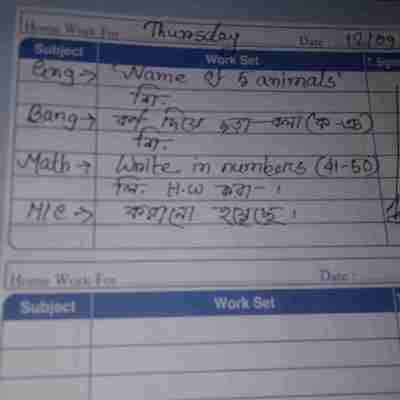 Home Work For Thursday Date : 12/09
Subject Work Set T. Sign
Eng → 'Name of 5 animals'
লি:
Bang → বর্ণ দিয়ে ছড়া বলা (ক-ঙ)
লি:
Math → Write in numbers (41-50)
লি: H.W করা- ।
H/C → করানো হয়েছে ।
Home Work For Date :
Subject Work Set